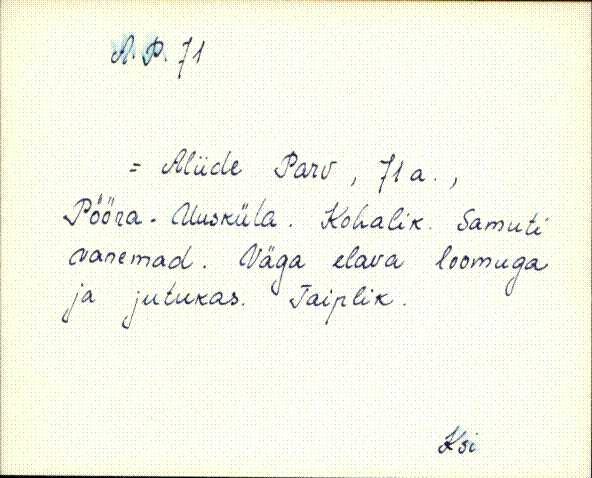 A. P. 71
= Aliide Parv, 71 a.,
Pööra-Uusküla. Kohalik. Samuti
vanemad. Väga elava loomuga
ja jutukas. Taiplik.
Ksi